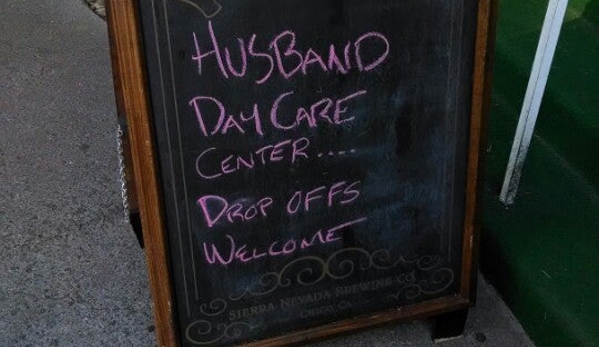 HUSBAND
DAY CARE
CENTER....
DROP OFFS
WELCOME
SIERRA NEVADA BREWING CO.
CHICO, CA